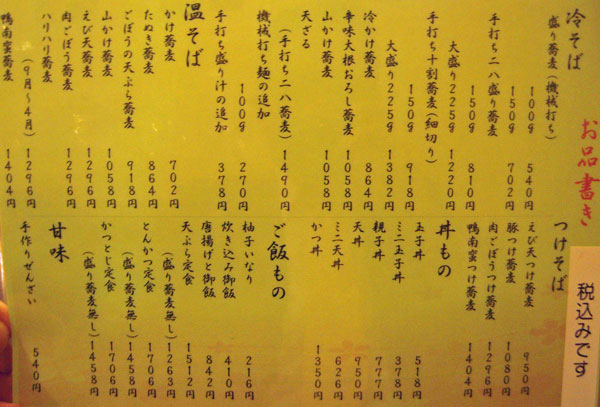 お品書き
税込みです
冷そば
盛り蕎麦(機械打ち)
100g 540円
150g 702円
手打ち二八盛り蕎麦
150g 810円
大盛り225g 1220円
手打ち十割蕎麦(細切り)
150g 918円
大盛り225g 1382円
冷かけ蕎麦 864円
辛味大根おろし蕎麦 1058円
山かけ蕎麦 1058円
天ざる
(手打ち二八蕎麦) 1490円
機械打ち麺の追加
100g 270円
手打ち盛り汁の追加 378円
温そば
かけ蕎麦 702円
たぬき蕎麦 864円
ごぼうの天ぷら蕎麦 918円
山かけ蕎麦 1058円
えび天蕎麦 1296円
肉ごぼう蕎麦 1296円
ハリハリ蕎麦
(9月〜4月) 1296円
鴨南蛮蕎麦 1404円
つけそば
えび天つけ蕎麦 950円
豚つけ蕎麦 1080円
肉ごぼうつけ蕎麦 1296円
鴨南蛮つけ蕎麦 1404円
丼もの
玉子丼 518円
ミニ玉子丼 378円
親子丼 777円
天丼 950円
ミニ天丼 626円
かつ丼 1350円
ご飯もの
柚子いなり 216円
炊き込み御飯 410円
唐揚げと御飯 842円
天ぷら定食 1512円
(盛り蕎麦無し) 1263円
とんかつ定食 1706円
(盛り蕎麦無し) 1458円
かつとじ定食 1706円
(盛り蕎麦無し) 1458円
甘味
手作りぜんざい 540円